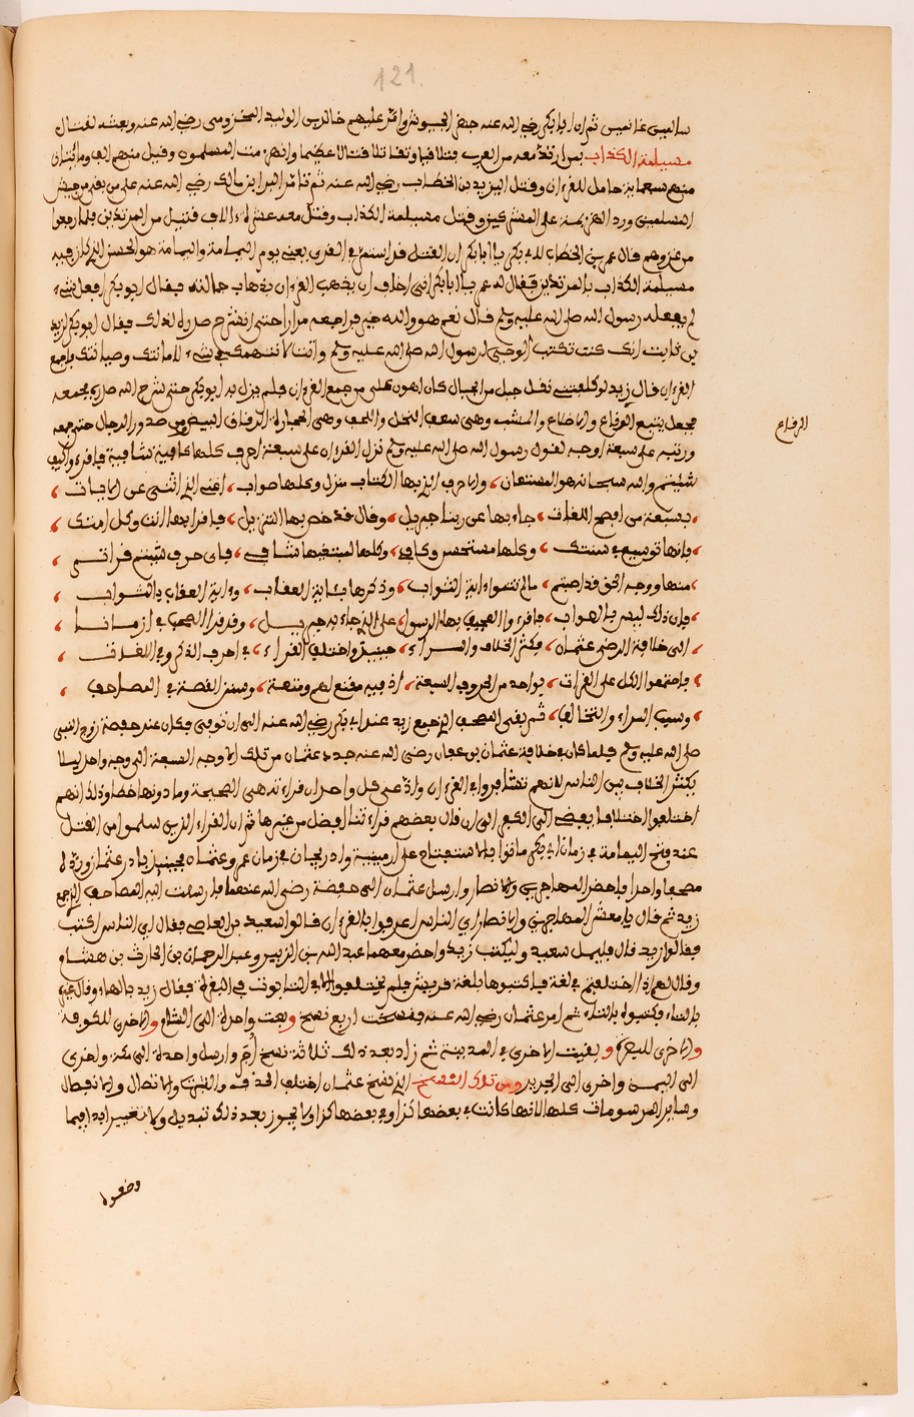 121
سالمين غانمين ثم ان ابا بكر رضي الله عنه جهز الجيوش وامر عليهم خالد بن الوليد المخزومي رضي الله عنه وبعثه لقتال
مسيلمة الكذاب بمن ارتد معه من العرب فتلاقيا وتقاتلا قتالا عظيما وانهزمت المسلمون وقتل منهم الف ومائتان
منهم سبعماية حامل للقرءان وقتل اليزيد بن الخطاب رضي الله عنه ثم تامر البرا ابن مالك رضي الله عنه على من بقي من جيش
المسلمين ورد الهزيمة على المشركين وقتل مسيلمة الكذاب وقتل معه عشرة ءالاف قتيل من المرتدين فلما رجعوا
من غزوهم قال عمر بن الخطاب لابي بكر يا ابا بكر ان القتل قد استحر في القرى يعني يوم اليمامة واليمامة هو الحسن الذي كان فيه
مسيلمة الكذاب بالمرتدين فقال له عمر يا ابا بكر انى اخاف ان يذهب القرءان بذهاب حمالته فقال ابو بكر افعل شيء
لم يفعله رسول الله صلى الله عليه وسلم قال نعم هو والله خير فراجعه مرارا حتى انشرح صدره لذلك فقال ابو بكر لزيد
بن ثابت انك كنت تكتب الوحي لرسول الله صلى الله عليه وسلم وانت لا نتهمك في شيء لامانتك وصيانتك فاجمع
القرءان قال زيد لو كلفتني نقل جبل من الجبال كان اهون علي من جمع القرءان فلم يزل به ابو بكر حتى شرح الله صدره بجمعه
فجعل يتتبع الرقاع والاضلاع والخشب وهي سعف النخل واللخف وهي الحجارة الرقاق البيض ومن صدور الرجال حتى جمعه
الرقاع
ورتبه على سبعة اوجه لقول رسول الله صلى الله عليه وسلم نزل القرءان على سبعة احرف كلها كافية شافية فاقرءوا كيف
شيتم والله سبحانه هو المستعان، والاحرف الذي بها الكتاب منزل وكلها صواب، اعني الذي اثنى عن الاثبات،
، بسبعة من افصح اللغات، جاء بها عن ربنا جبريل، وقال قد خص بها التنزيل، فاقرا بها انت وكل امتك
، فانها توسيع في سنتك، وكلها مستحسن وكافي، وكلها لمبتغيها شافي، فباى حرف شيتم قراتم
، منها ووجه الحق قد اصبتم، مالم تتموا ءاية الثواب، وذكرها بئاية العقاب، وءاية العقاب بالثواب،
، فان ذلك ليس بالصواب، فاقرءوا الصحيح بها الرسول، على الذي جاء به جبريل، وقد قرا الصحب في ازماننا
، الى خلافة الرضى عثمان، فكثر الخلاف والمراء، حينيذ واختلف القراء، في احرف الذكر وفي اللغات،
، فاجتمعوا الكل على القرات، بواحد من الحروف السبعة، اذ فيه مقنع لهم ومتعة، وستر القصة في المصاحف،
، وسبب المراء والتخالف، ثم بقي المصحف الذي جمع زيد عند ابي بكر رضي الله عنه الى ان توفي فكان عند حفصة زوج النبي
صلى الله عليه وسلم فلما كان في خلافة عثمان بن عفان رضي الله عنه جدده عثمان من تلك الاوجه السبعة الى وجه واحد ليلا
يكثر الخلاف بين الناس لانهم تشاجروا في القرءان وادعى كل واحد ان قراءته هي الصحيحة وما دونها خطا وذلك انهم
اختلفوا اختلافا يفضي الى الكفر الى ان قال بعضهم قراءتنا افضل من غيرها ثم ان القراء الذين سلموا من القتل
عند فتح اليمامة في زمان ابي بكر ماتوا بالاستفتاح على ارمينية واذربيجان في زمان عمر وعثمان فحينيذ بادر عثمان ورده
مصحفا واحدا فاحضر المهاجرين والانصار وارسل عثمان الى حفصة رضي الله عنهما فارسلت اليه المصاحف الذي جمع
زيد ثم قال يا معشر المهاجرين والانصار اي الناس اعرفوا بالقرءان قالوا سعيد بن العاصي فقال اي الناس اكتب
فقالوا زيد قال فليمل سعيد وليكتب زيد واحضر معهما عبد الله بن الزبير وعبد الرحمان بن الحارث بن هشام
وقال لهم اذا اختلفتم في لغة فاكتبوها بلغة قريش فلم يختلفوا الا في التابوت في البقرة فقال زيد بالهاء وقال غيره
بالتاء فكتبوه بالتاء ثم امر عثمان رضي الله عنه فنسخت اربع نسخ وبعث واحدة الى الشام والاخرى للكوفة
والاخرى للبصرة وبقيت الاخرى في المدينة ثم زاد بعد ذلك ثلاثة نسخ اخر وارسل واحدة الى مكة واخرى
الى اليمن واخرى الى البحرين ومن تلك النسخ التي نسخ عثمان اختلف الحذف والثبت والاتصال والانفصال
وساير المرسومات كلها لانها كانت في بعضها كذا وفي بعضها كذا ولا يجوز بعد ذلك تبديل ولا تغيير ابدا فيما
وضعوه